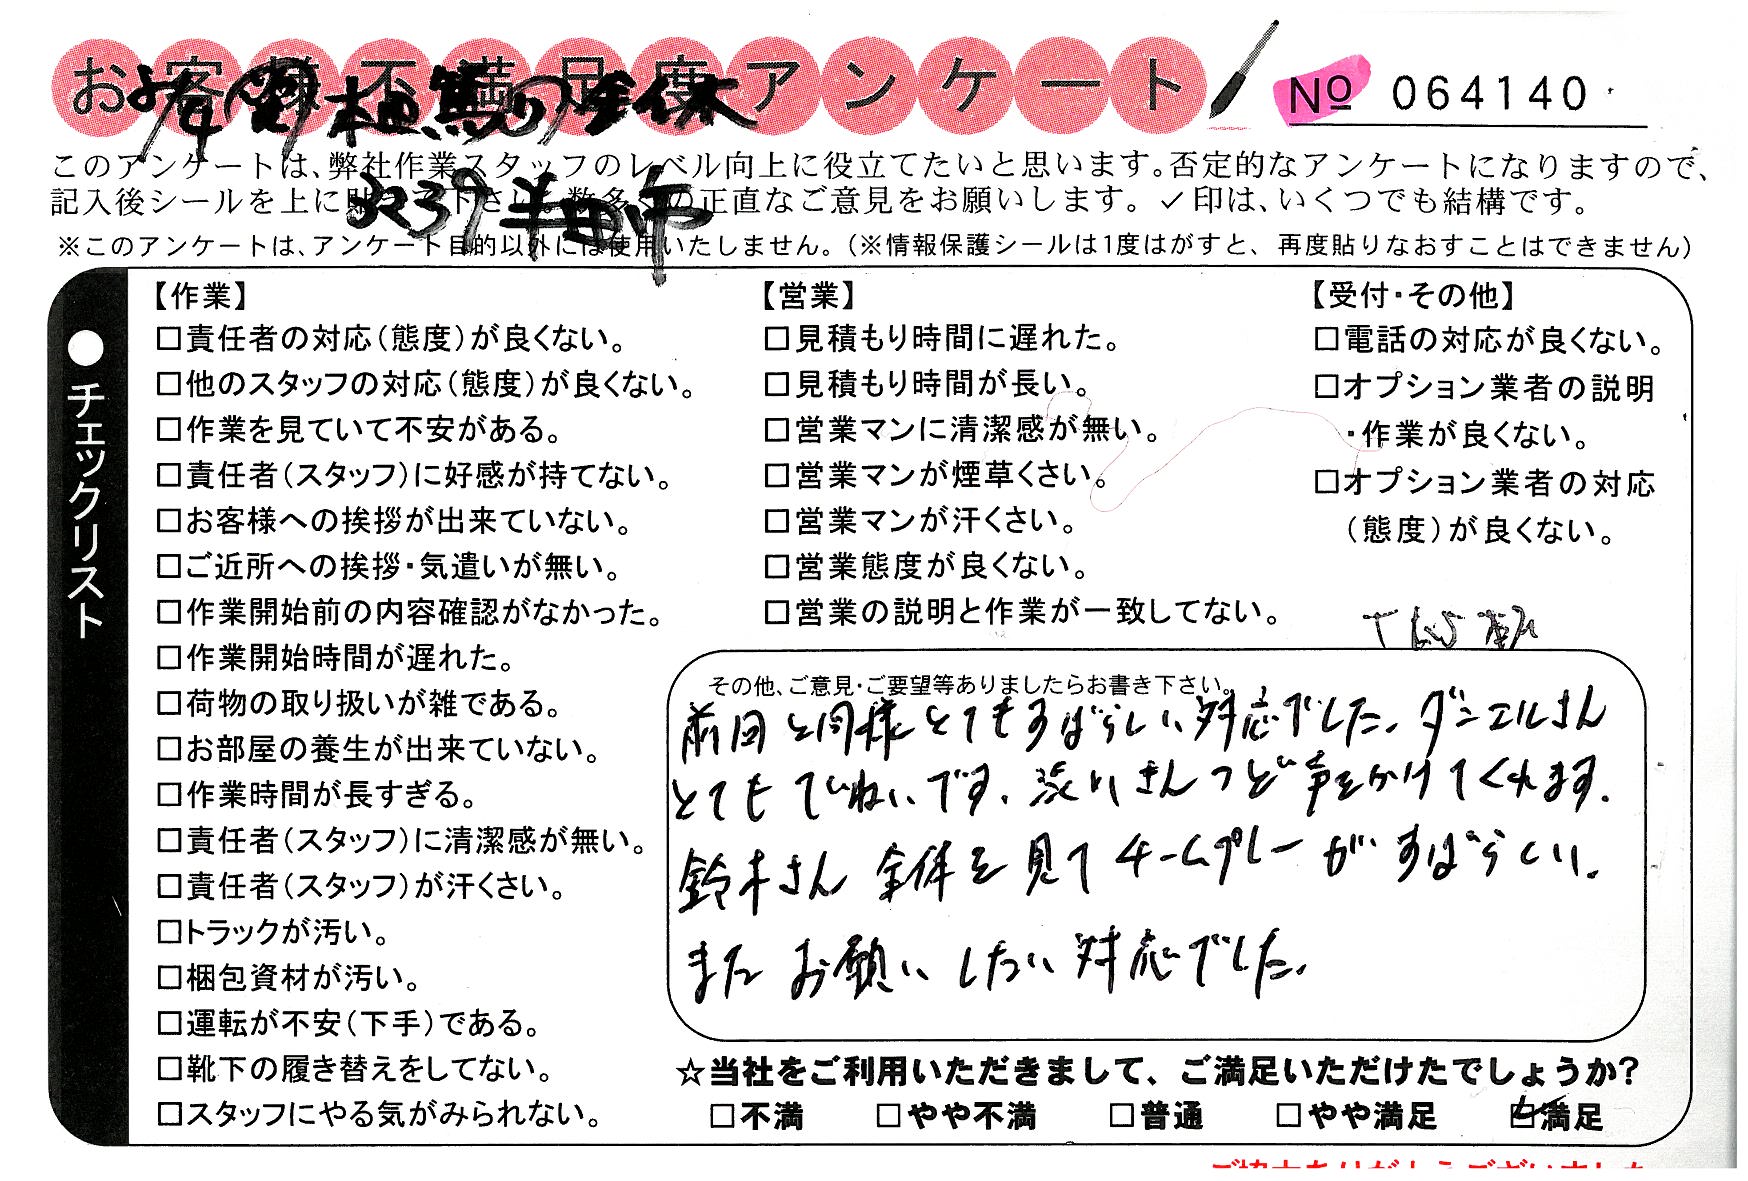 お客様不満足度アンケート
No 064140
このアンケートは、弊社作業スタッフのレベル向上に役立てたいと思います。否定的なアンケートになりますので、
記入後シールを上に貼って下さい。数多くの正直なご意見をお願いします。✓印は、いくつでも結構です。
3239 半田市
※このアンケートは、アンケート目的以外には使用いたしません。（※情報保護シールは1度はがすと、再度貼りなおすことはできません）
●チェックリスト
【作業】
□責任者の対応（態度）が良くない。
□他のスタッフの対応（態度）が良くない。
□作業を見ていて不安がある。
□責任者（スタッフ）に好感が持てない。
□お客様への挨拶が出来ていない。
□ご近所への挨拶・気遣いが無い。
□作業開始前の内容確認がなかった。
□作業開始時間が遅れた。
□荷物の取り扱いが雑である。
□お部屋の養生が出来ていない。
□作業時間が長すぎる。
□責任者（スタッフ）に清潔感が無い。
□責任者（スタッフ）が汗くさい。
□トラックが汚い。
□梱包資材が汚い。
□運転が不安（下手）である。
□靴下の履き替えをしてない。
□スタッフにやる気がみられない。
【営業】
□見積もり時間に遅れた。
□見積もり時間が長い。
□営業マンに清潔感が無い。
□営業マンが煙草くさい。
□営業マンが汗くさい。
□営業態度が良くない。
□営業の説明と作業が一致してない。
【受付・その他】
□電話の対応が良くない。
□オプション業者の説明
・作業が良くない。
□オプション業者の対応
（態度）が良くない。
その他、ご意見・ご要望等ありましたらお書き下さい。
前回と同様とてもすばらしい対応でした。ダニエルさん
とてもていねいです。渋川さんつど声をかけてくれます。
鈴木さん全体を見てチームプレーがすばらしい。
またお願いしたい対応でした。
☆当社をご利用いただきまして、ご満足いただけたでしょうか？
□不満 □やや不満 □普通 □やや満足 ☑満足
ご協力ありがとうございました